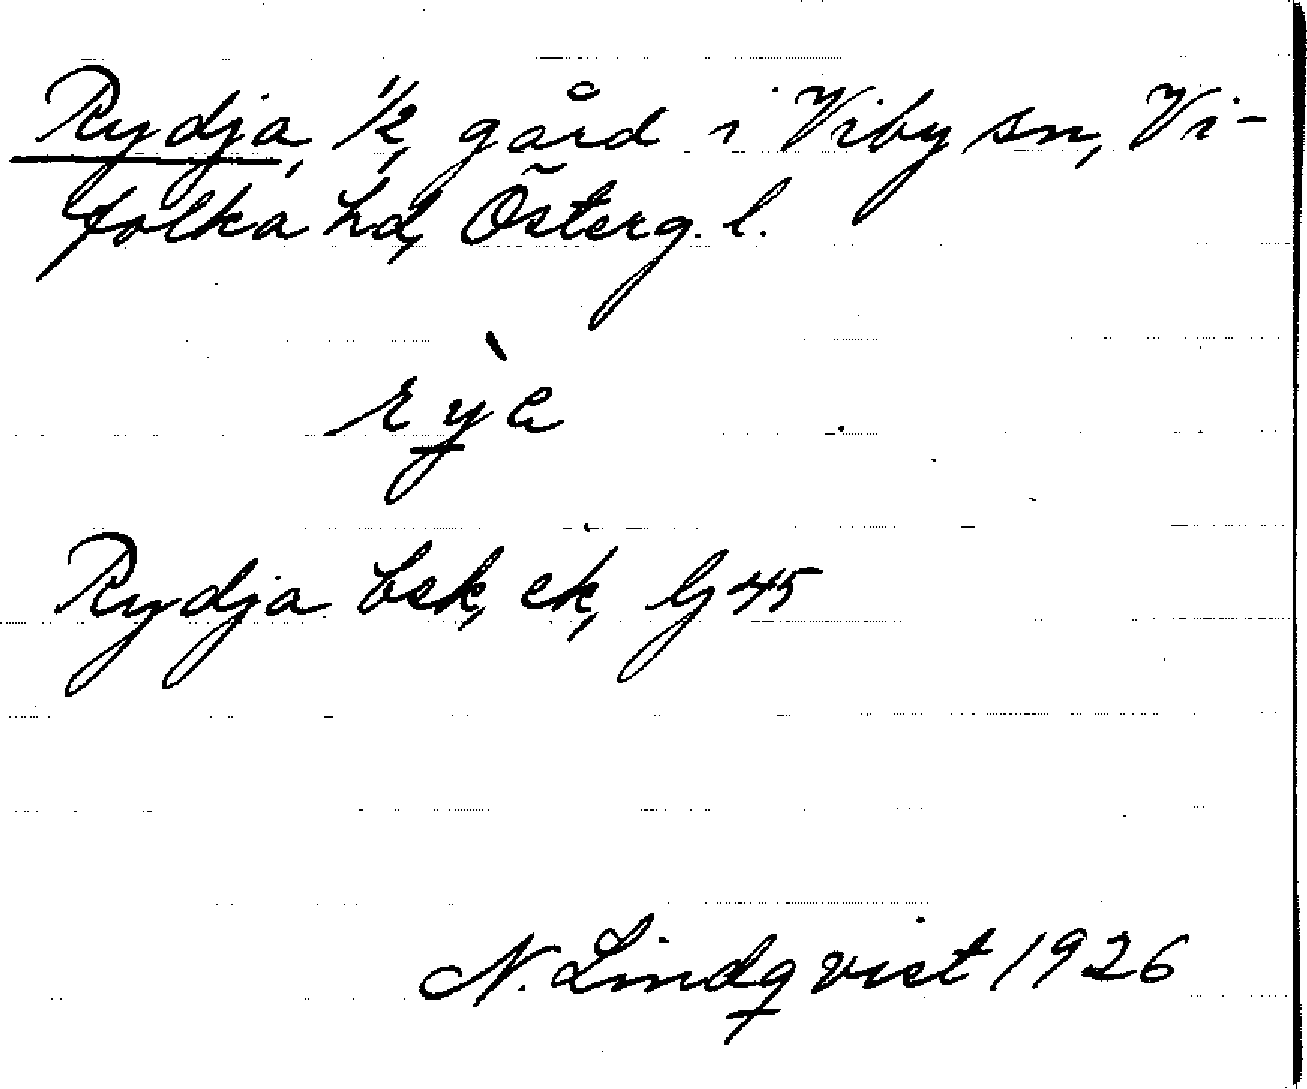 Rydja, 1/2, gård i Viby sn, Vi-
folka hd, Österg. l.
rỳa
Rydja bsk, ek, G 45
N. Lindqvist 1926